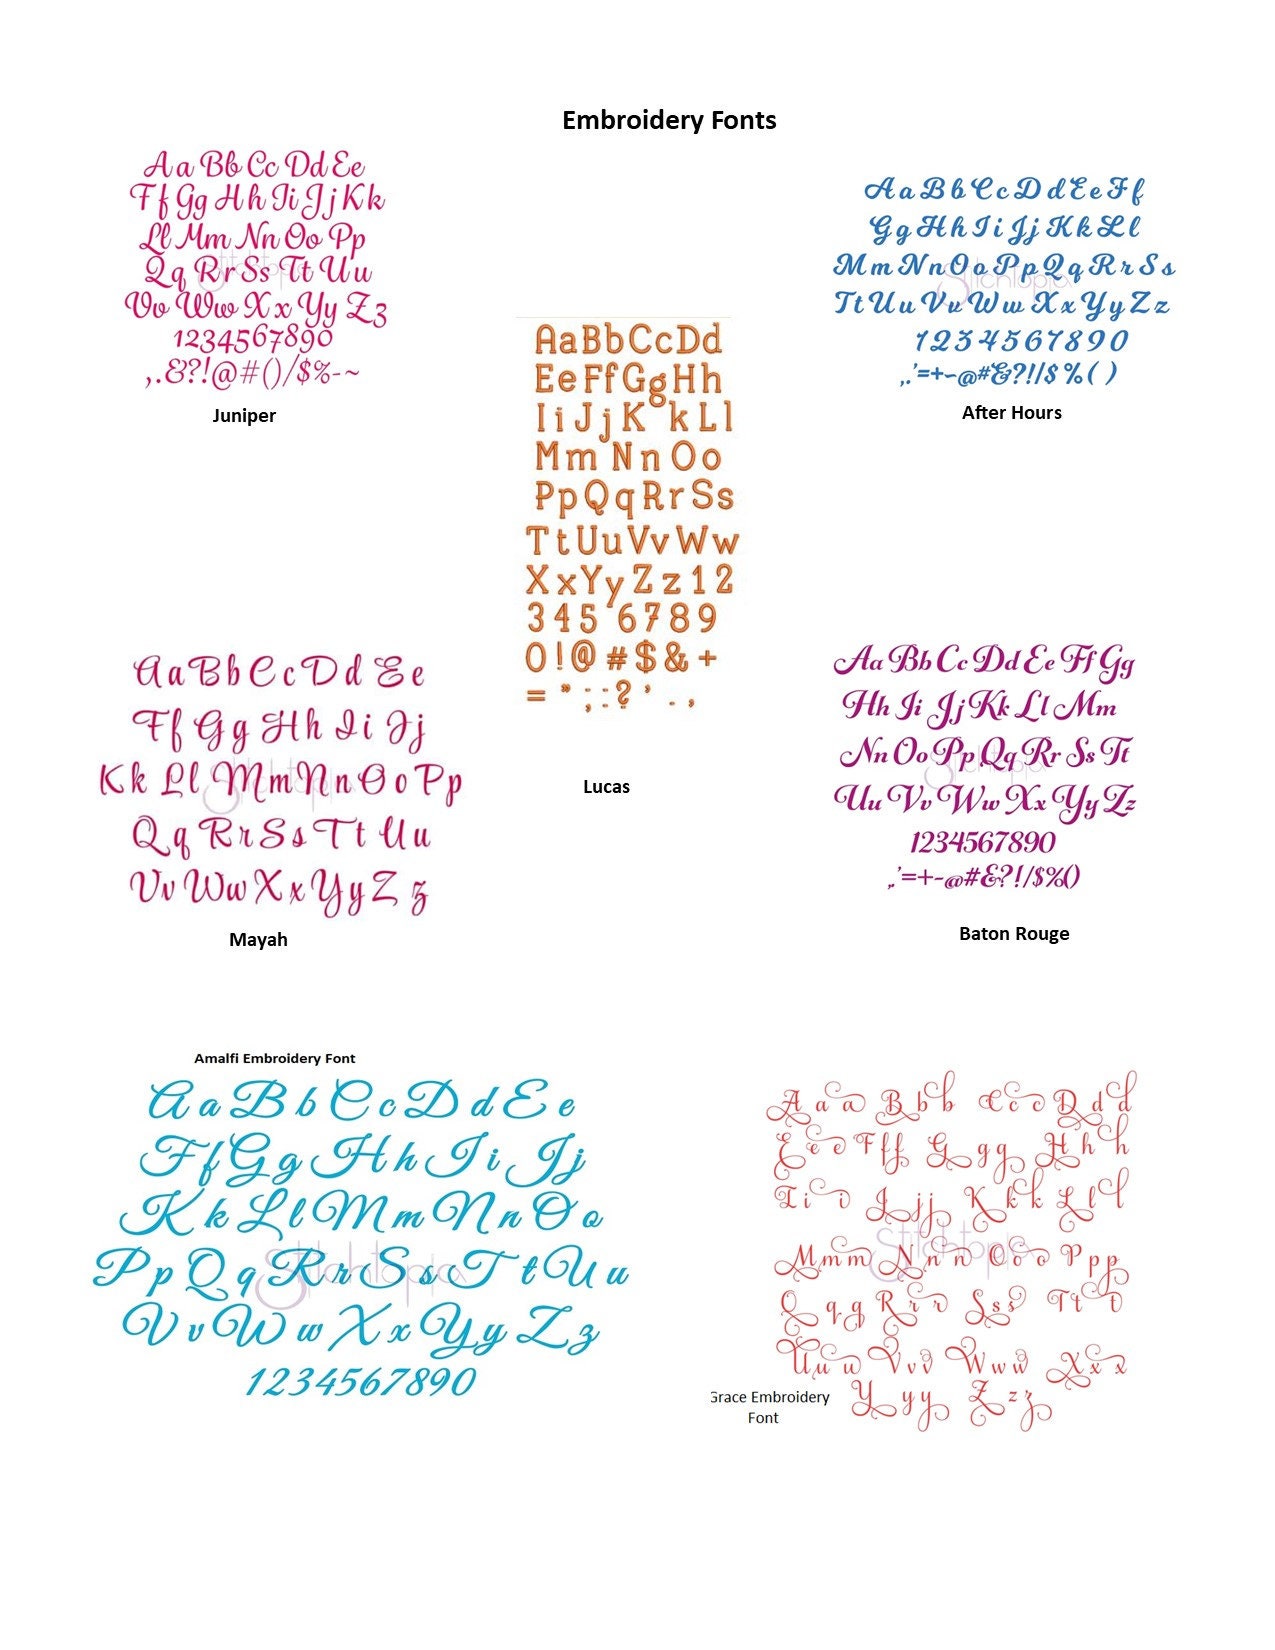 Embroidery Fonts
Aa Bb Cc Dd Ee
Ff Gg Hh Ii Jj Kk
Ll Mm Nn Oo Pp
Qq Rr Ss Tt Uu
Vv Ww Xx Yy Zz
1234567890
,.&?!@#()/$%-~
Juniper
AaBbCcDdEeFf
GgHhIiJjKkLl
MmNnOoPpQqRrSs
TtUuVvWwXxYyZz
1234567890
,.'=+-@#&?!/$%()
After Hours
AaBbCcDd
EeFfGgHh
IiJjKkLl
MmNnOo
PpQqRrSs
TtUuVvWw
XxYyZz12
3456789
0!@#$&+
= " ; : ? ' . ,
Lucas
AaBbCcDdEe
FfGgHhIiJj
KkLlMmNnOoPp
QqRrSsTtUu
VvWwXxYyZz
Mayah
Aa Bb Cc Dd Ee Ff Gg
Hh Ii Jj Kk Ll Mm
Nn Oo Pp Qq Rr Ss Tt
Uu Vv Ww Xx Yy Zz
1234567890
,.'=+-@#&?!/$%()
Baton Rouge
Amalfi Embroidery Font
AaBbCcDdEe
FfGgHhIiJj
KkLlMmNnOo
PpQqRrSsTtUu
VvWwXxYyZz
1234567890
Aaa Bbb Ccc Ddd
Eee Fff Ggg Hhh
Iii Jjj Kkk Lll
Mmm Nnn Ooo Ppp
Qqq Rrr Sss Ttt
Uuu Vvv Www Xxx
Yyy Zzz
Grace Embroidery
Font
Stitchtopia
Stitchtopia
Stitchtopia
Stitchtopia
Stitchtopia
Stitchtopia